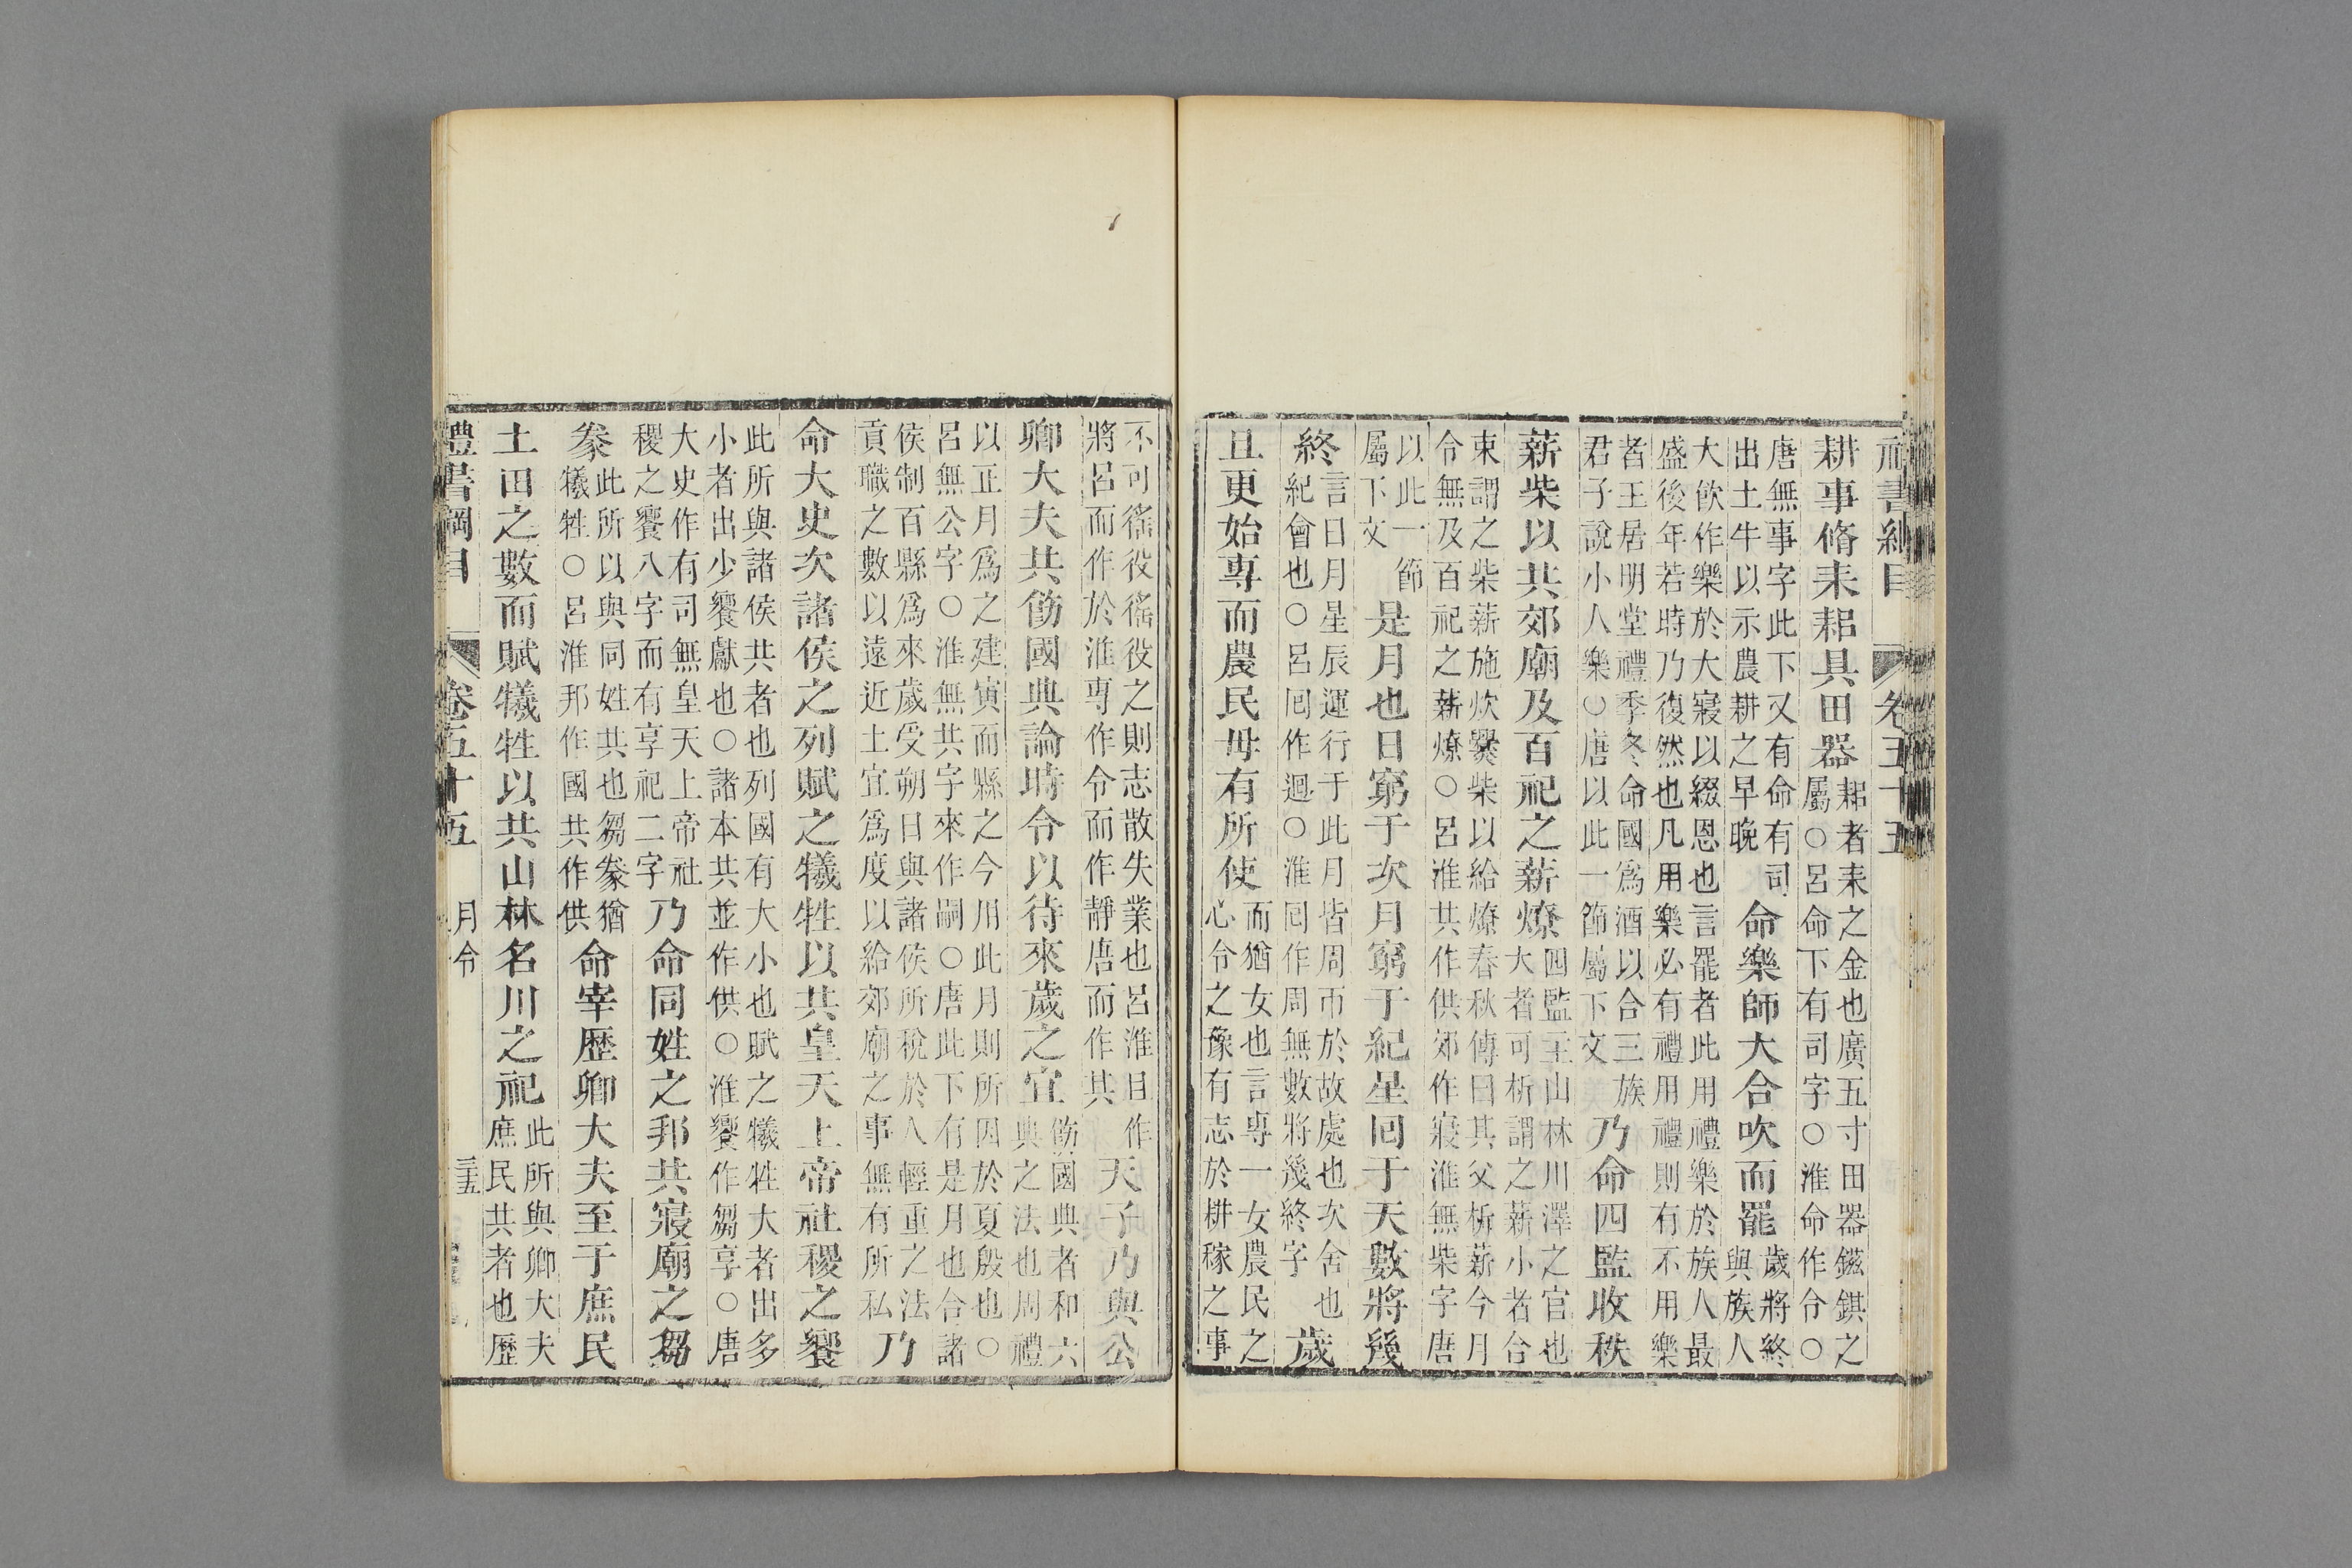 禮書綱目 卷五十五
耕事脩耒耜具田器耜者耒之金也廣五寸田器鎡錤之屬○呂命下有司字○淮命作令○
唐無事字此下又有命有司出土牛以示農耕之早晚命樂師大合吹而罷歲將終與族人
大飲作樂於大寢以綴恩也言罷者此用禮樂於族人最盛後年若時乃復然也凡用樂必有禮用禮則有不用樂
者王居明堂禮季冬命國爲酒以合三族君子說小人樂○唐以此一節屬下文乃命四監收秩
薪柴以共郊廟及百祀之薪燎四監主山林川澤之官也大者可析謂之薪小者合
束謂之柴薪施炊爨柴以給燎春秋傳曰其父析薪今月令無及百祀之薪燎○呂淮共作供郊作寢淮無柴字唐
以此一節屬下文是月也日窮于次月窮于紀星回于天數將幾
終言日月星辰運行于此月皆周帀於故處也次舍也紀會也○呂回作迴○淮回作周無數將幾終字歲
且更始專而農民毋有所使而猶女也言專一女農民之心令之豫有志於耕稼之事
不可徭役徭役之則志散失業也呂淮且作將呂而作於淮專作令而作靜唐而作其天子乃與公
卿大夫共飭國典論時令以待來歲之宜飭國典者和六典之法也周禮
以正月爲之建寅而縣之今用此月則所因於夏殷也○呂無公字○淮無共字來作嗣○唐此下有是月也合諸
侯制百縣爲來歲受朔日與諸侯所稅於人輕重之法貢職之數以遠近土宜爲度以給郊廟之事無有所私乃
命大史次諸侯之列賦之犧牲以共皇天上帝社稷之饗
此所與諸侯共者也列國有大小也賦之犧牲大者出多小者出少饗獻也○諸本共並作供○淮饗作芻享○唐
大史作有司無皇天上帝社稷之饗八字而有享祀二字乃命同姓之邦共寢廟之芻
豢此所以與同姓共也芻豢猶犧牲○呂淮邦作國共作供命宰歷卿大夫至于庶民
土田之數而賦犧牲以共山林名川之祀此所與卿大夫庶民共者也歷
禮書綱目 卷五十五 月令 三五